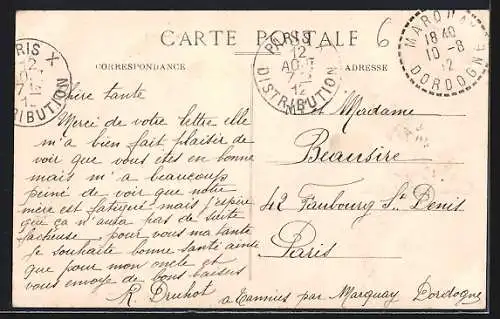 CARTE POSTALE
6
CORRESPONDANCE
ADRESSE
PARIS X
12
AO
7
12
DISTRIBUTION
PARIS
12
AO
7
12
DISTRIBUTION
MARQUAY
18 40
10 - 8
12
DORDOGNE
Chère tante
Merci de votre lettre elle
m'a bien fait plaisir de
voir que vous êtes en bonne
mais m'a beaucoup
peiné de voir que notre
mère est fatiguée mais j'espère
que ça n'aura pas de suite
facheuse pour vous ma tante
Je souhaite bonne santé ainsi
que pour mon oncle et
vous envoye de bons baisers
R Druhot
et Madame
Beausire
42 Faubourg St Denis
Paris
a Tamnies par Marquay Dordogne